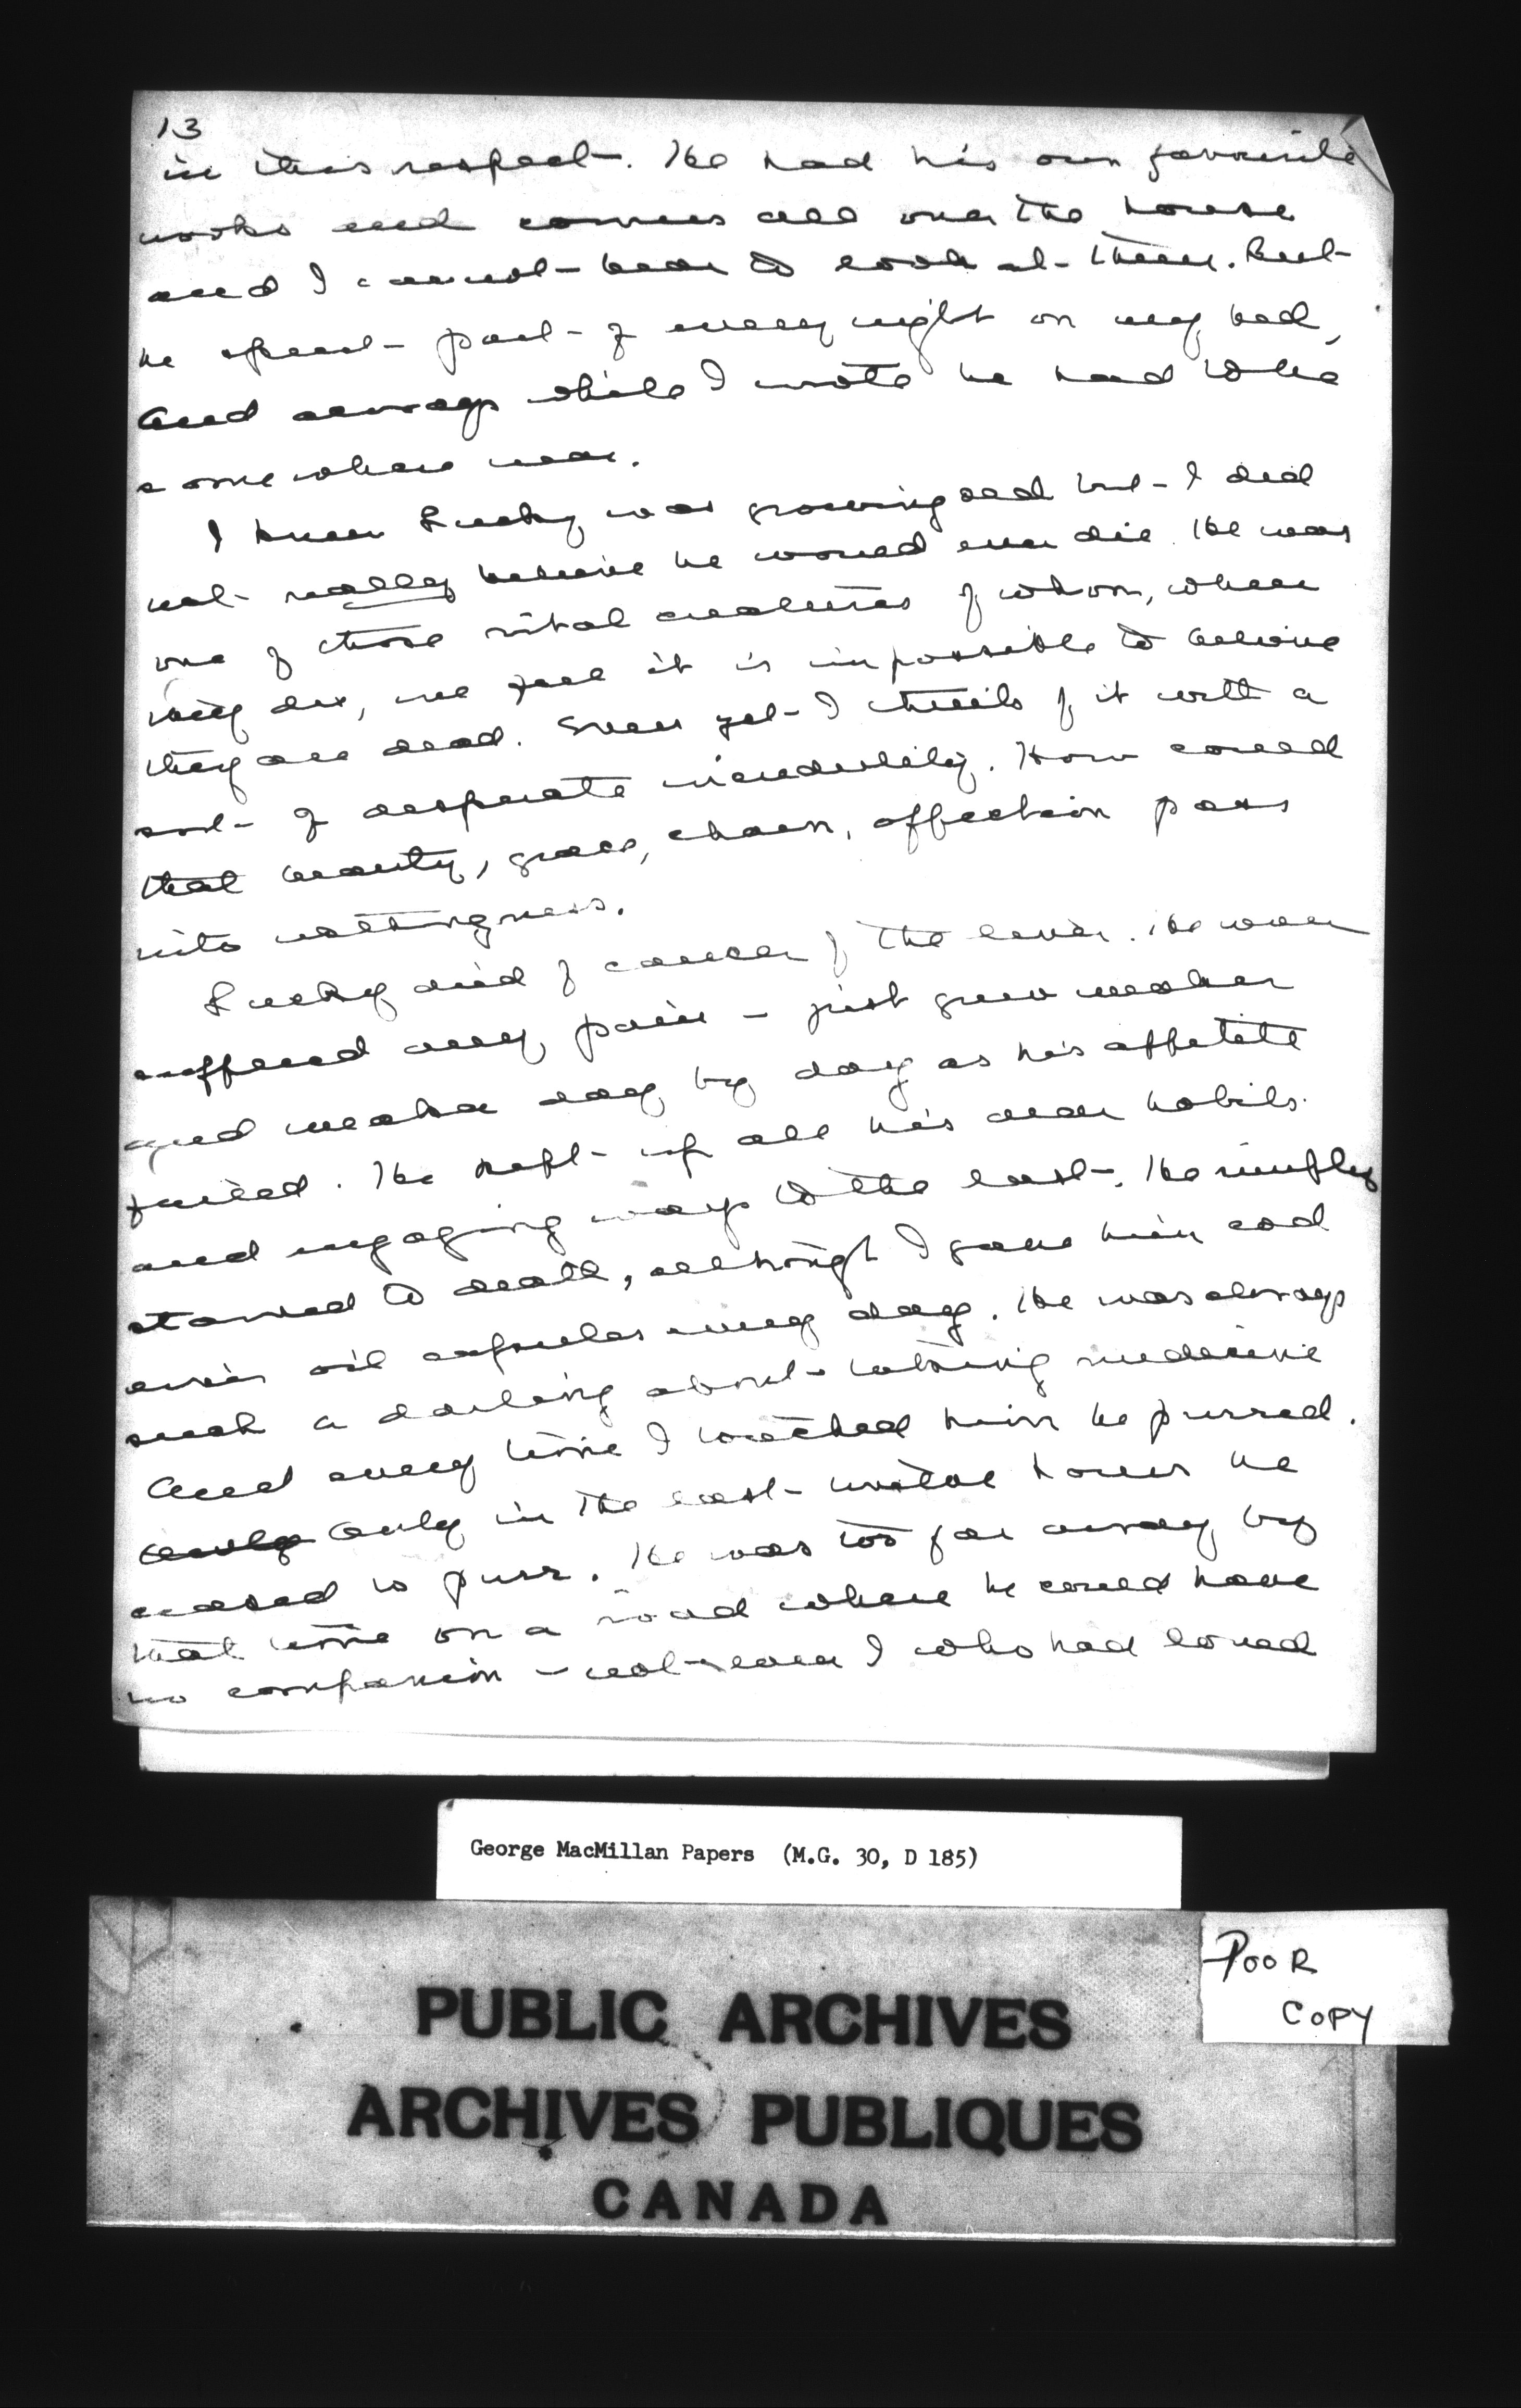 13
in this respect. He had his own favourite
nooks and corners all over the house
and I cannot bear to look at them. But
he spent part of every night on my bed,
and always while I wrote he had to be
somewhere near.
I knew Lucky was growing old but I did
not really believe he would ever die. He was
one of those vital creatures of whom, when
they die, we feel it is impossible to believe
they are dead. Even yet I think of it with a
sort of desperate incredulity. How could
that beauty, grace, charm, affection pass
into nothingness.
Lucky died of cancer of the liver. He never
suffered any pain - just grew weaker
and weaker day by day as his appetite
failed. He kept up all his dear habits
and engaging ways to the last. He simply
starved to death, although I gave him cod
liver oil capsules every day. He was always
such a darling about taking medicine
And every time I touched him he purred.
only Only in the last twelve hours he
ceased to purr. He was too far away by
that time on a road where he could have
no companion - not even I who had loved
George MacMillan Papers (M.G. 30, D 185)
POOR
COPY
PUBLIC ARCHIVES
ARCHIVES PUBLIQUES
CANADA